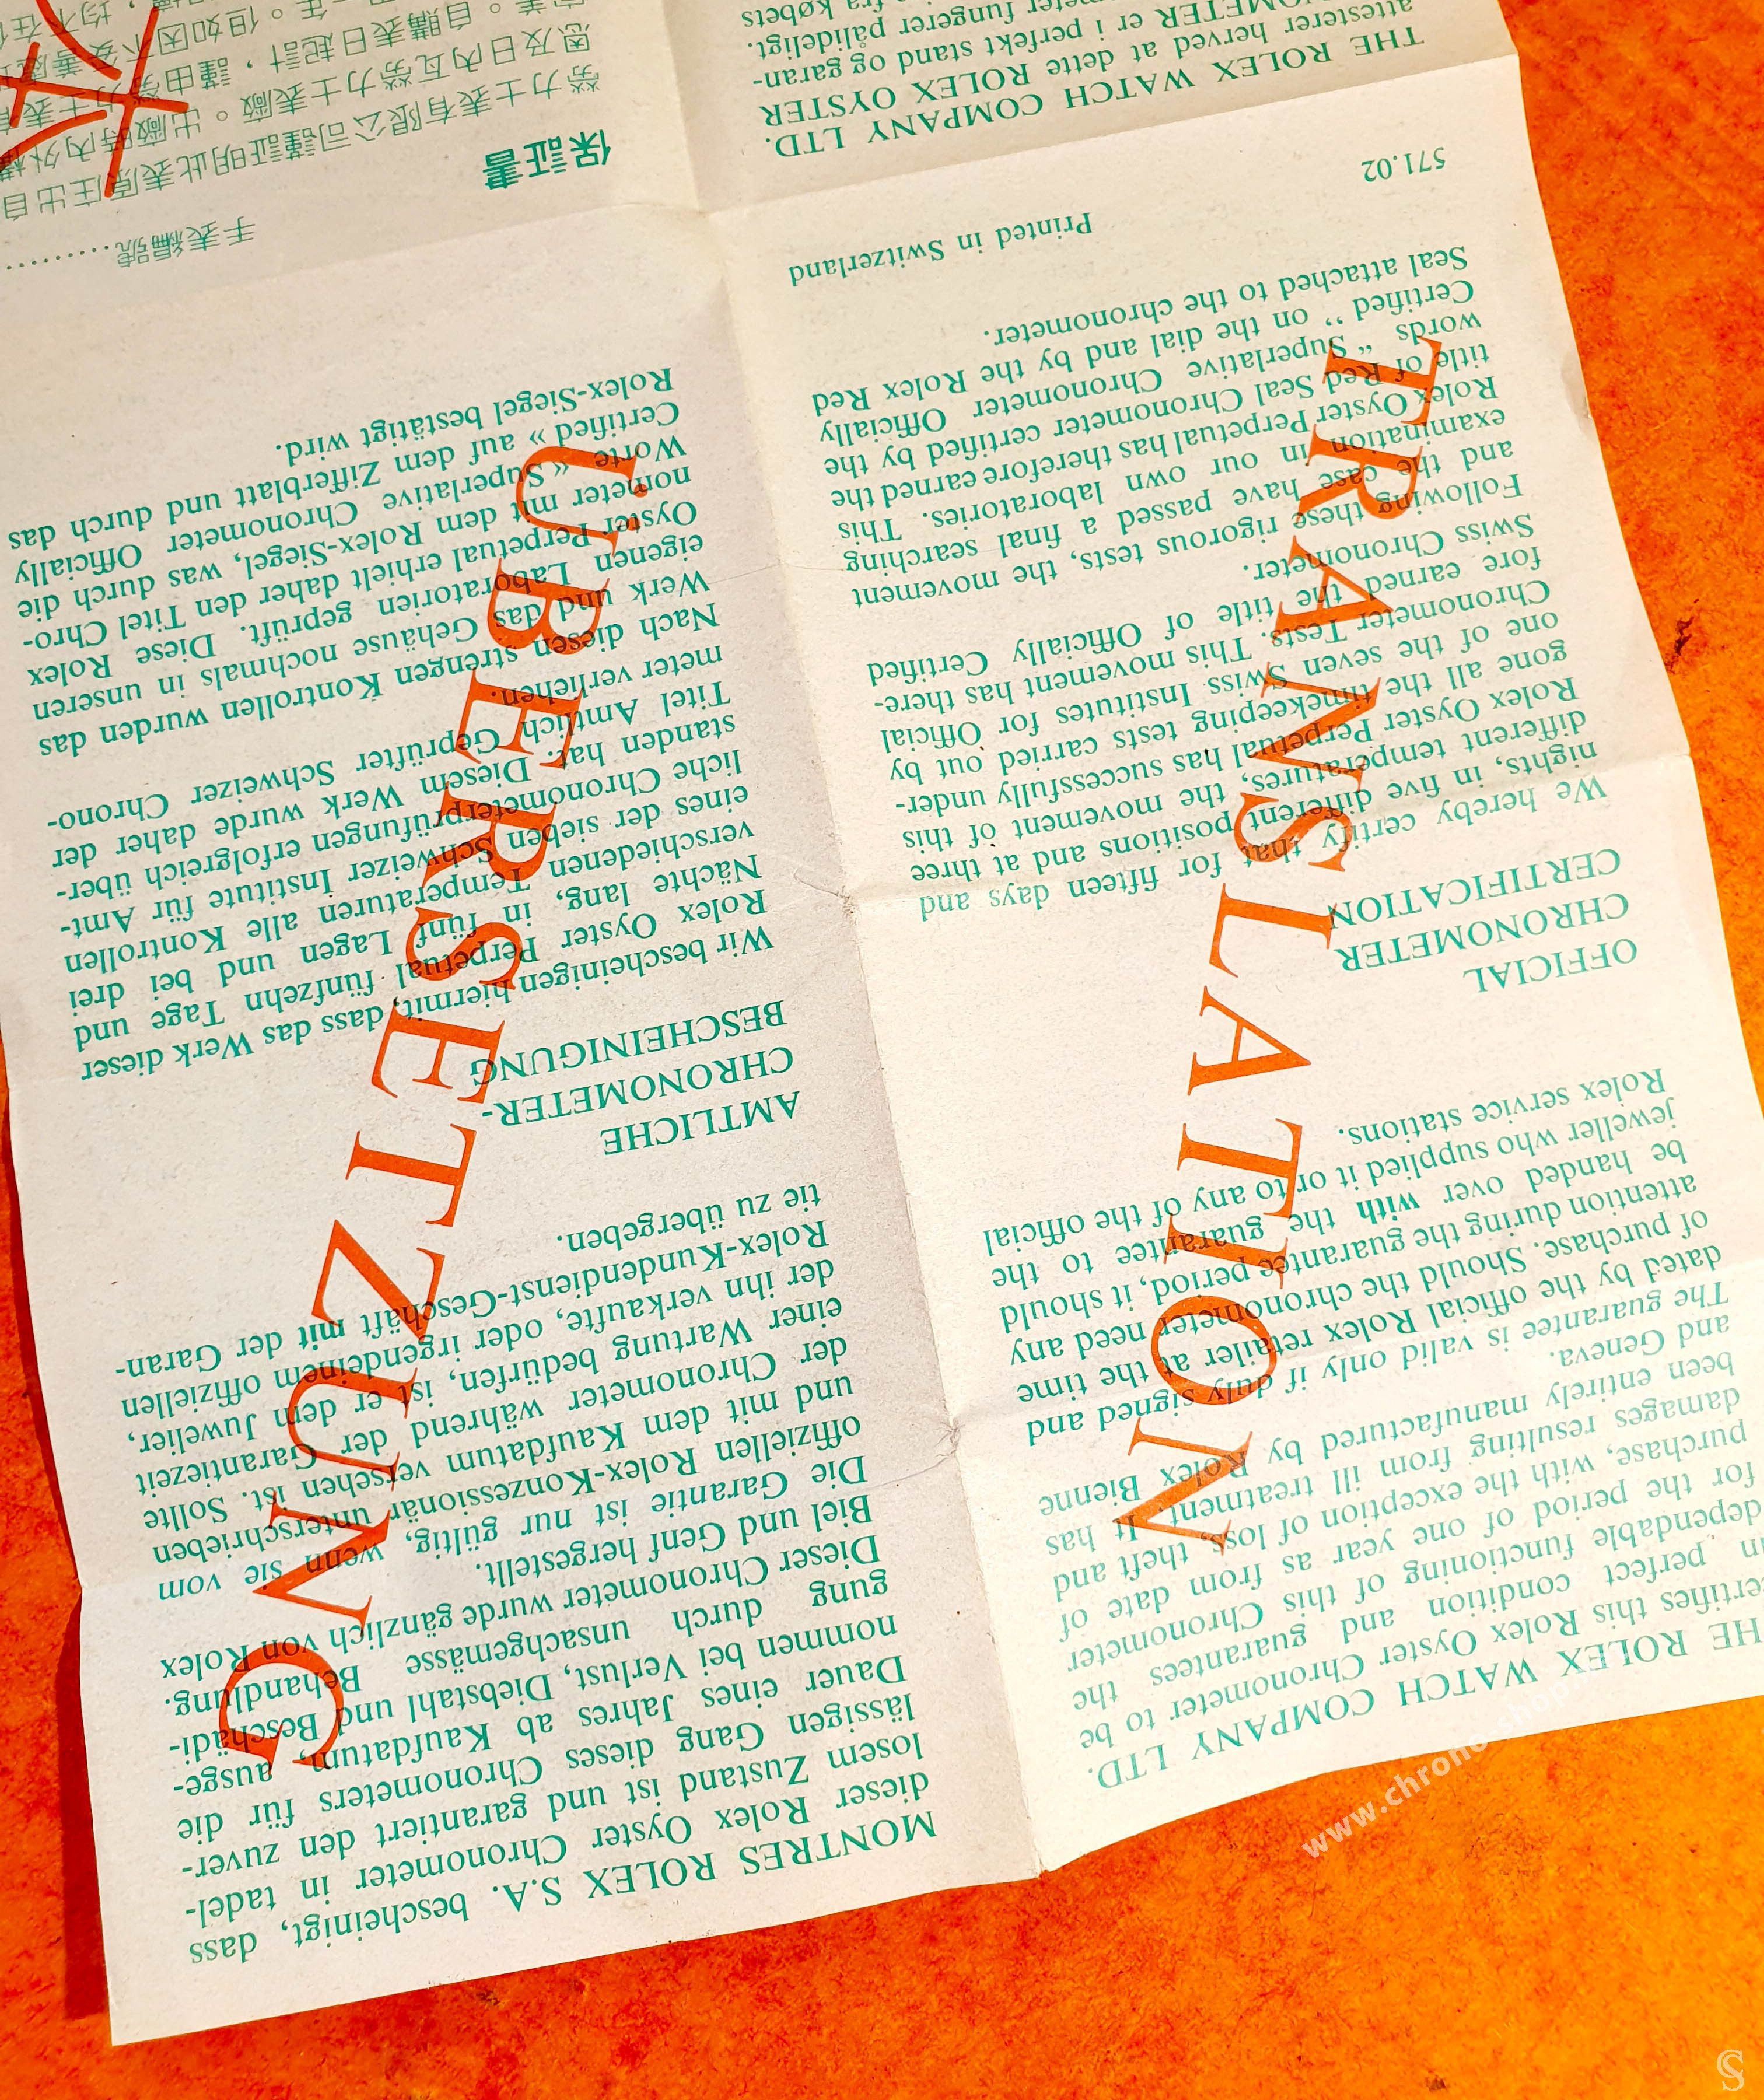 MONTRES ROLEX S.A. bescheinigt, dass
dieser Rolex Oyster Chronometer in tadel-
losem Zustand ist und garantiert den zuver-
lässigen Gang dieses Chronometers für die
Dauer eines Jahres ab Kaufdatum, ausge-
nommen bei Verlust, Diebstahl und Beschädi-
gung durch unsachgemässe Behandlung.
Dieser Chronometer wurde gänzlich von Rolex
Biel und Genf hergestellt.
Die Garantie ist nur gültig, wenn sie vom
offiziellen Rolex-Konzessionär unterschrieben
und mit dem Kaufdatum versehen ist. Sollte
der Chronometer während der Garantiezeit
einer Wartung bedürfen, ist er dem Juwelier,
der ihn verkaufte, oder irgendeinem offiziellen
Rolex-Kundendienst-Geschäft mit der Garan-
tie zu übergeben.
AMTLICHE
CHRONOMETER-
BESCHEINIGUNG
Wir bescheinigen hiermit, dass das Werk dieser
Rolex Oyster Perpetual fünfzehn Tage und
Nächte lang, in fünf Lagen und bei drei
verschiedenen Temperaturen alle Kontrollen
eines der sieben Schweizer Institute für Amt-
liche Chronometerprüfungen erfolgreich über-
standen hat. Diesem Werk wurde daher der
Titel Amtlich Geprüfter Schweizer Chrono-
meter verliehen.
Nach diesen strengen Kontrollen wurden das
Werk und das Gehäuse nochmals in unseren
eigenen Laboratorien geprüft. Diese Rolex
Oyster Perpetual erhielt daher den Titel Chro-
nometer mit dem Rolex-Siegel, was durch die
Worte « Superlative Chronometer Officially
Certified » auf dem Zifferblatt und durch das
Rolex-Siegel bestätigt wird.
ÜBERSETZUNG
THE ROLEX WATCH COMPANY LTD.
certifies this Rolex Oyster Chronometer to be
in perfect condition and guarantees the
dependable functioning of this Chronometer
for the period of one year as from date of
purchase, with the exception of loss, theft and
damages resulting from ill treatment. It has
been entirely manufactured by Rolex Bienne
and Geneva.
The guarantee is valid only if duly signed and
dated by the official Rolex retailer at the time
of purchase. Should the chronometer need any
attention during the guarantee period, it should
be handed over with the guarantee to the
jeweller who supplied it or to any of the official
Rolex service stations.
OFFICIAL
CHRONOMETER
CERTIFICATION
We hereby certify that for fifteen days and
nights, in five different positions and at three
different temperatures, the movement of this
Rolex Oyster Perpetual has successfully under-
gone all the timekeeping tests carried out by
one of the seven Swiss Institutes for Official
Chronometer Tests. This movement has there-
fore earned the title of Officially Certified
Swiss Chronometer.
Following these rigorous tests, the movement
and the case have passed a final searching
examination in our own laboratories. This
Rolex Oyster Perpetual has therefore earned the
title of Red Seal Chronometer certified by the
words “ Superlative Chronometer Officially
Certified ” on the dial and by the Rolex Red
Seal attached to the chronometer.
Printed in Switzerland
571.02
TRANSLATION
手表編號..........
保証書
勞力士表有限公司謹証明此表原庄出自
恩及日內瓦勞力士表廠。出廠時內外機
。自購表日起計，謹由勞力士表
年。但如因不妥善處
THE ROLEX WATCH COMPANY LTD.
attesterer herved at dette ROLEX OYSTER
er i perfekt stand og garan-
fungerer pålideligt.
fra købets